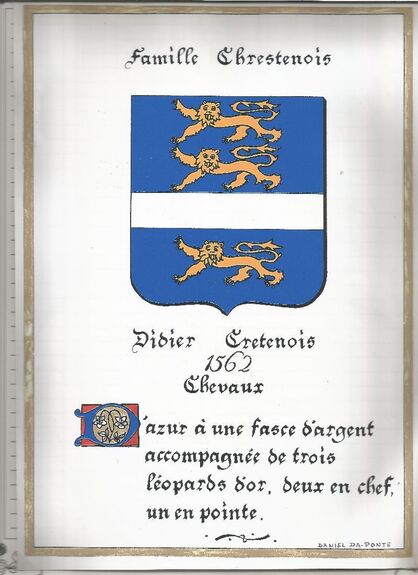 Famille Chrestenois
Didier Cretenois
1562
Chevaux
D'azur à une fasce d'argent
accompagnée de trois
léopards d'or, deux en chef,
un en pointe.
DANIEL DA-PONTE